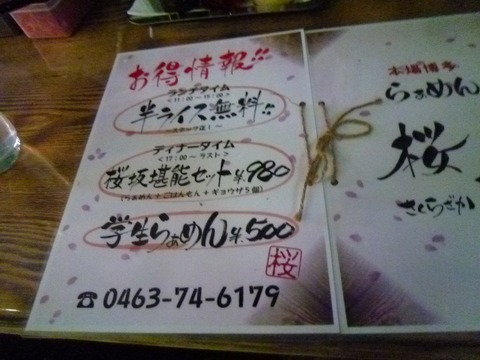 お得情報!!
ランチタイム
<11:00～15:00>
半ライス無料!!
ディナータイム
<17:00～ラスト>
桜坂堪能セット ¥980
(らぁめん+ごはんもん+ギョウザ5個)
学生らぁめん ¥500
桜
☎ 0463-74-6179
本場博多
らぁめん
桜
さくらざか